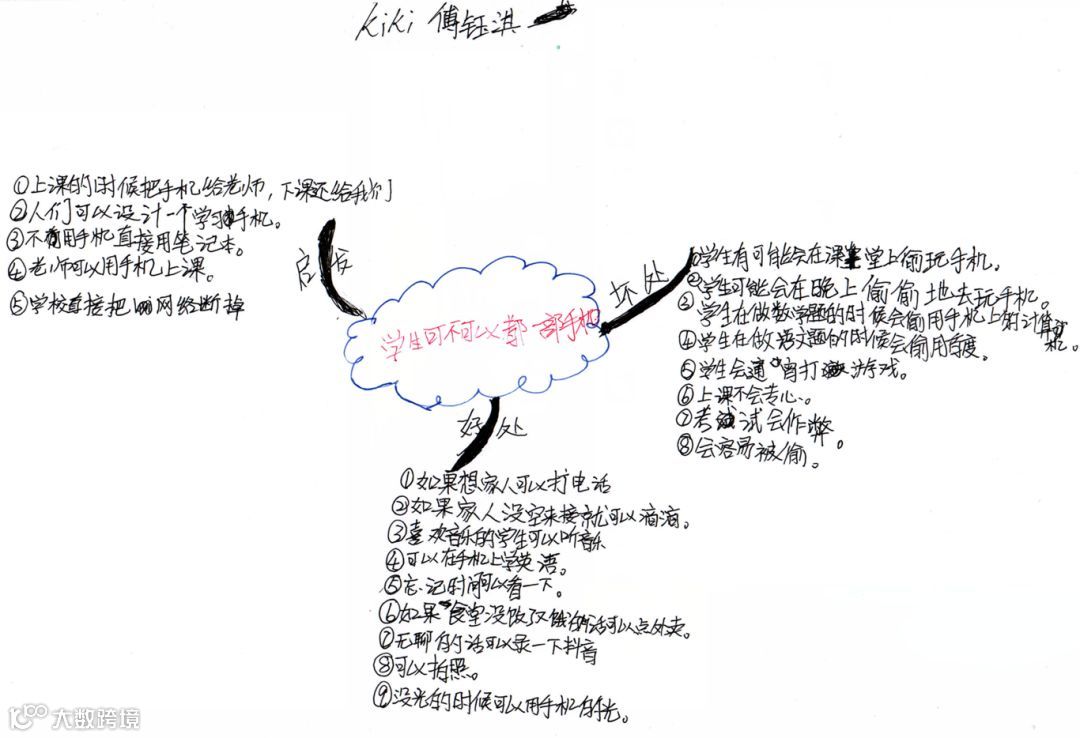 kiki 傅钰淇
①上课的时候把手机给老师，下课还给我们
②人们可以设计一个学习手机。
③不用手机直接用笔记本。
④老师可以用手机上课。
⑤学校直接把网络断掉
启发
坏处
①学生有可能会在课堂上偷玩手机。
②学生可能会在晚上偷偷地去玩手机。
③学生在做数学题的时候会偷用手机上的计算机。
④学生在做语文题的时候会偷用百度。
⑤学生会通宵打游戏。
⑥上课不会专心。
⑦考试会作弊。
⑧会容易被偷。
学生可不可以带一部手机
好处
①如果想家人可以打电话
②如果家人没空来接就可以滴滴。
③喜欢音乐的学生可以听音乐
④可以在手机上学英语。
⑤忘记时间可以看一下。
⑥如果食堂没饭了又饿的话可以点外卖。
⑦无聊的话可以录一下抖音
⑧可以拍照。
⑨没光的时候可以用手机的光。
大数跨境